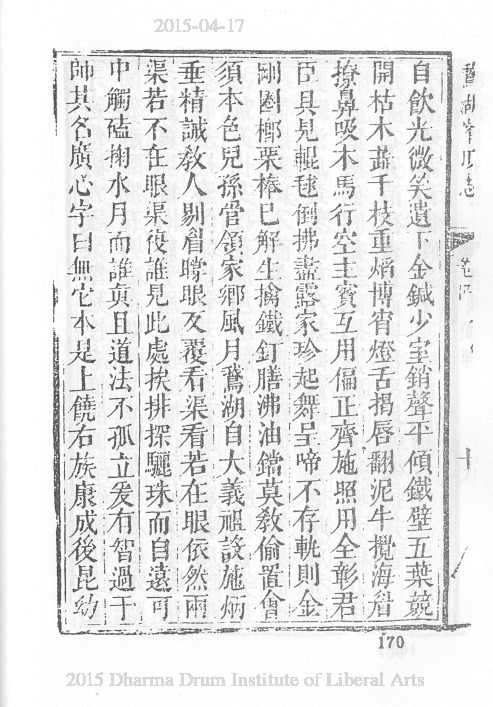 2015-04-17
鵞湖峯頂志
卷四
十
自飲光微笑遺下金鍼少室銷聲平傾鐵壁五葉競
開枯木蘂千枝重焰博宵燈舌揭唇翻泥牛攪海眉
撩鼻吸木馬行空主賓互用偏正齊施照用全彰君
臣具見輥毬倒拂盡露家珍起舞呈啼不存軌則金
剛圈榔栗棒巳解生擒鐵釘膳沸油鐺莫敎偷置會
須本色兒孫管領家鄉風月鵞湖自大義禪設施炳
垂精誠敎人剔眉瞠眼反覆看渠看若在眼依然兩
渠若不在眼渠復誰見此處挨排探驪珠而自遠可
中觸磕掬水月而誰眞且道法不孤立爰有智過于
師其名廣心字曰無它本是上饒右族康成後昆幼
170
2015 Dharma Drum Institute of Liberal Arts